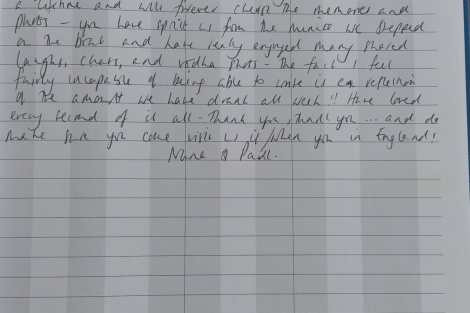 a lifetime and will forever cherish the memories and
photos - you have spoilt us from the minute we stepped
on the boat and have really enjoyed many shared
laughs, cheers, and vodka shots - the fact I feel
fairly incapable of being able to write is a reflection
of the amount we have drank all week!! Have loved
every second of it all - Thank you, thank you ... and do
make sure you come visit us if/when you in England!
& Paul.